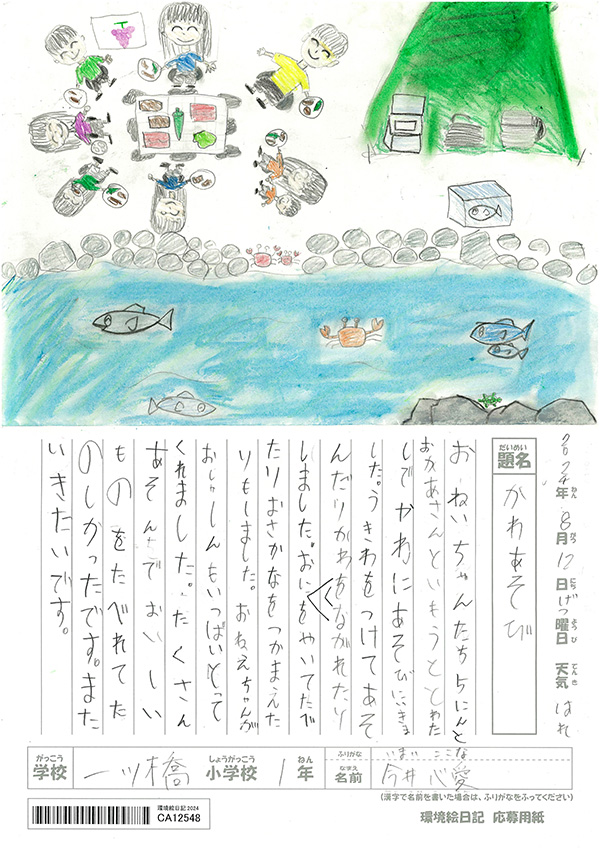 2024年ねん 8月がつ 12日にち げつ曜日ようび 天気てんき はれ
だいめい
題名 かわあそび
おねいちゃんたち5にんと
おかあさんといもうととわた
しでかわにあそびにいきま
した。うきわをつけてあそ
んだりかわをながれたり
しました。おにくをやいてたべ
たりおさかなをつかまえた
りもしました。おねえちゃんが
おしゃしんもいっぱいとって
くれました。たくさん
あそんでおいしい
ものをたべれてた
のしかったです。また
いきたいです。
がっこう しょうがっこう ねん ふりがな いまい ここな
学校 一ツ橋 小学校 1年 なまえ 名前 今井 心愛
(漢字で名前を書いた場合は、ふりがなをふってください)
環境絵日記2024
CA12548
環境絵日記 応募用紙